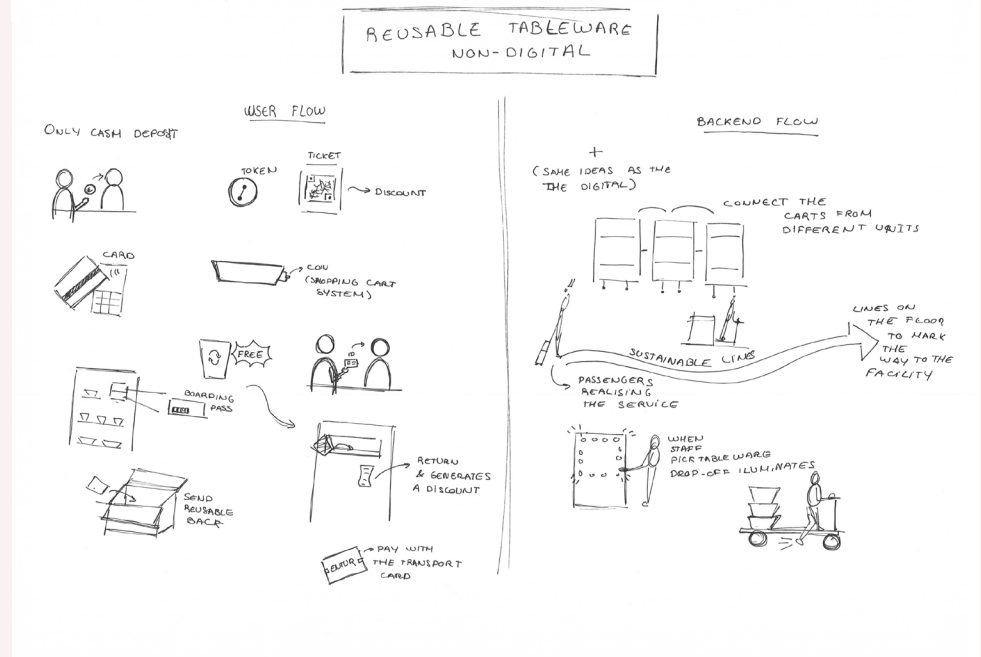 REUSABLE TABLEWARE
NON-DIGITAL
USER FLOW
ONLY CASH DEPOSIT
TOKEN
TICKET
DISCOUNT
CARD
COIN
(SHOPPING CART
SYSTEM)
FREE
ID
BOARDING
PASS
RETURN
& GENERATES
A DISCOUNT
SEND
REUSABLE
BACK
PAY WITH
THE TRANSPORT
CARD
BACKEND FLOW
+
(SAME IDEAS AS THE
THE DIGITAL)
CONNECT THE
CARTS FROM
DIFFERENT UNITS
!!
SUSTAINABLE LINES
LINES ON
THE FLOOR
TO MARK
THE
WAY TO THE
FACILITY
PASSENGERS
REALISING
THE SERVICE
WHEN
STAFF
PICK TABLEWARE
DROP-OFF ILUMINATES